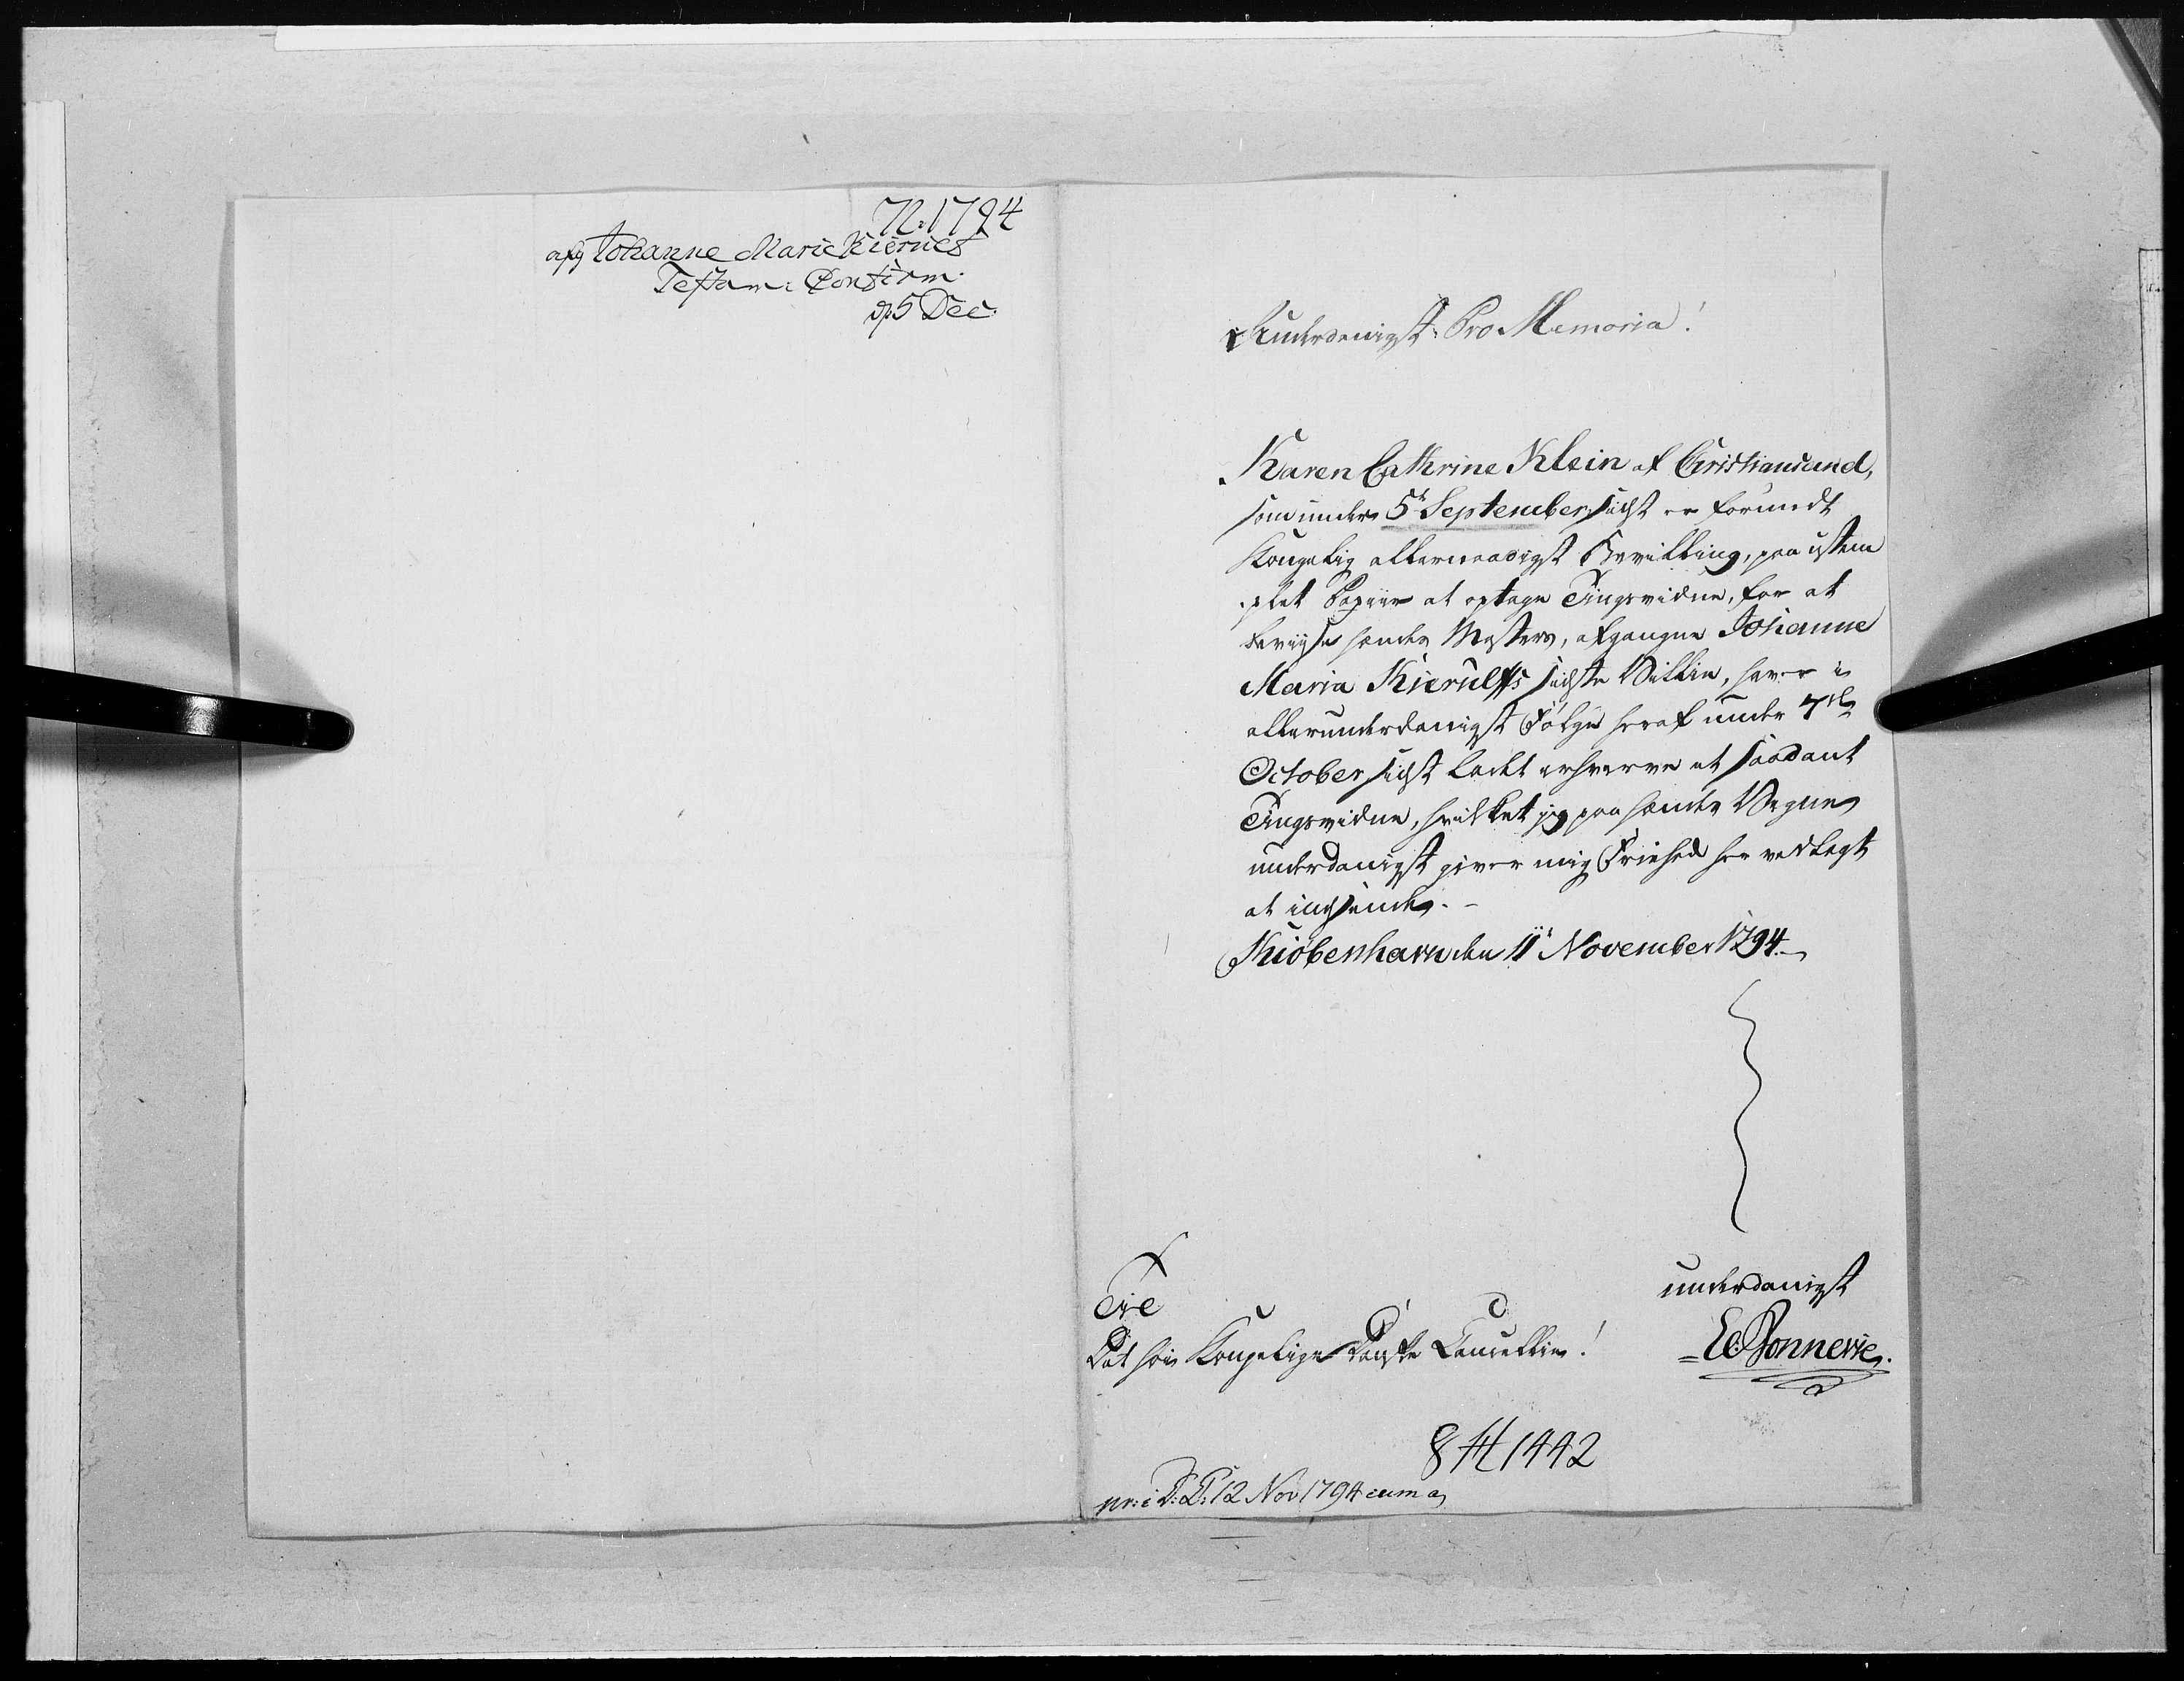 N: 1794
afg Johanne Marie Kierulfs
Testam: Confirm.
d. 5 Dec.
Underdanigst Pro Memoria!
Karen Cathrine Klein af Christiansand,
som under 5t September sidst er forundt
Kongelig allernaadigst Bevilling, paa ustem
plet Papiir at optage Tingsvidne, for at
beviise hendes Mosters, afgangne Johanne
Maria Kierulffs sidste Villie, haver i
allerunderdanigst Følge heraf under 7de
October sidst ladet erhverve et saadant
Tingsvidne, hvilket jeg paa hendes Vegne
underdanigst giver mig Friehed her vedlagt
at indsende.
Kiöbenhavn den 11te November 1794.
underdanigst
Til
Det høie Kongelige Danske Cancellie!
E. Bonnevie.
8 H 1442
pr: i D: C: 12 Nov 1794 cum a